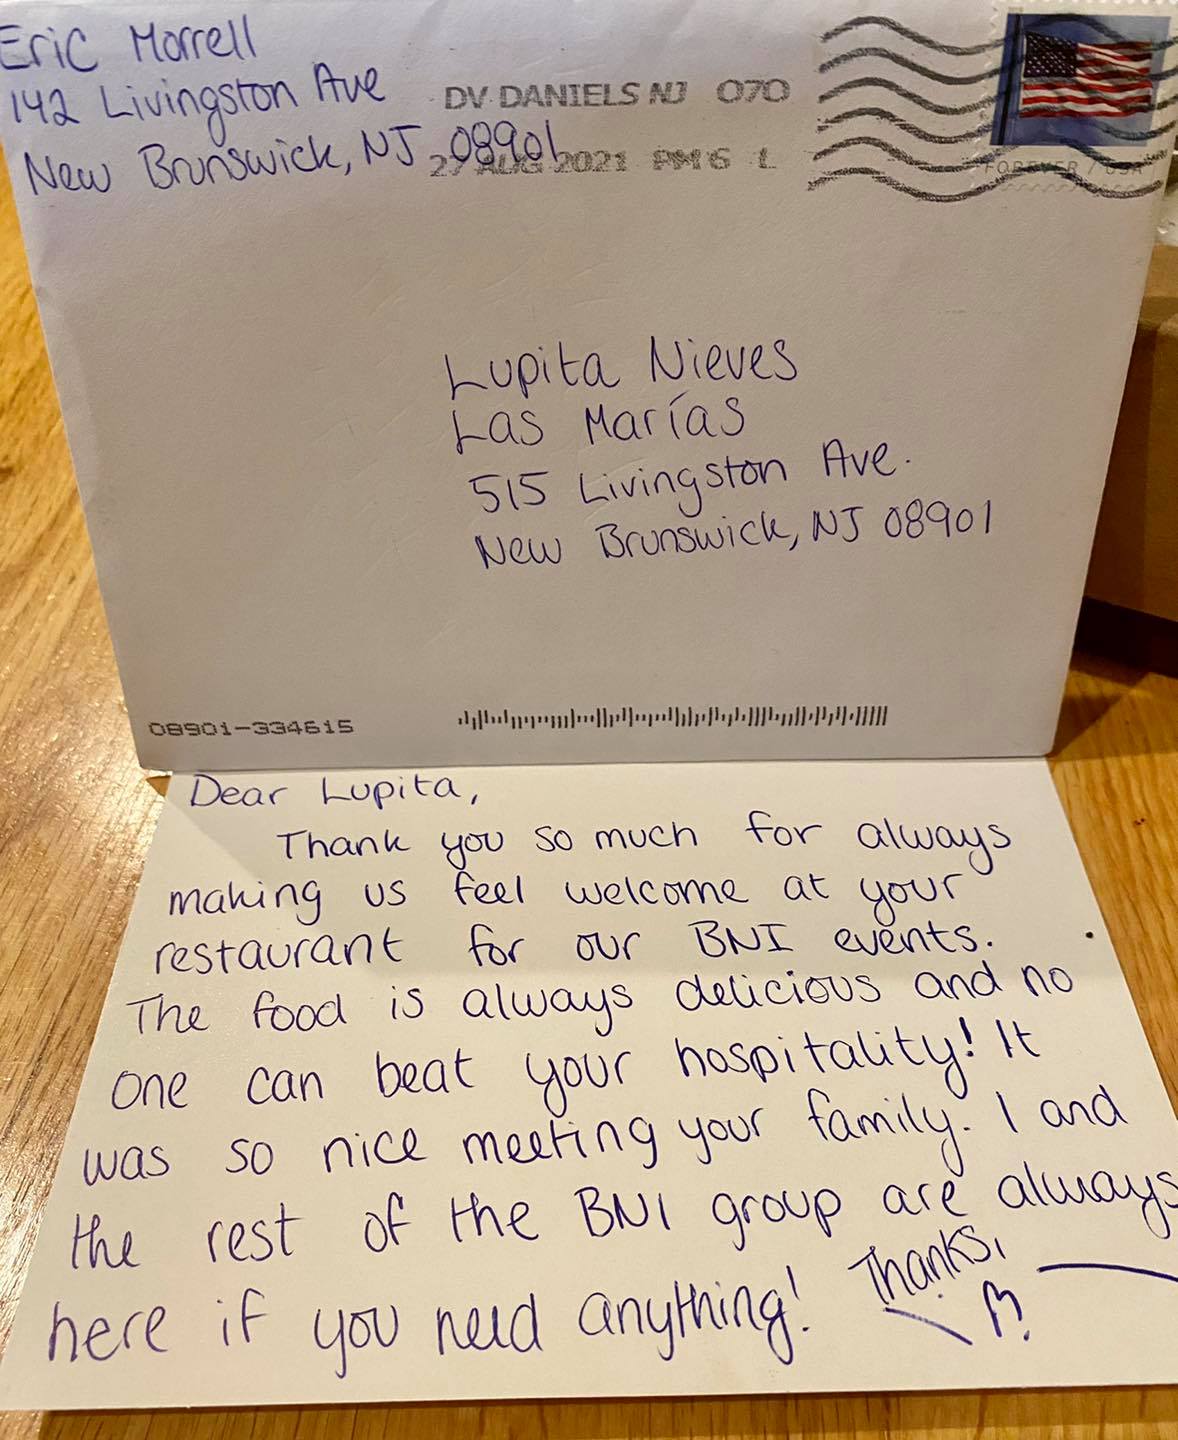 Eric Morrell
142 Livingston Ave
New Brunswick, NJ 08901
DV DANIELS NJ 070
27 AUG 2021 PM 6 L
FOREVER / USA
Lupita Nieves
Las Marías
515 Livingston Ave.
New Brunswick, NJ 08901
08901-334615
Dear Lupita,
Thank you so much for always
making us feel welcome at your
restaurant for our BNI events.
The food is always delicious and no
one can beat your hospitality! It
was so nice meeting your family. I and
the rest of the BNI group are always
here if you need anything! Thanks,